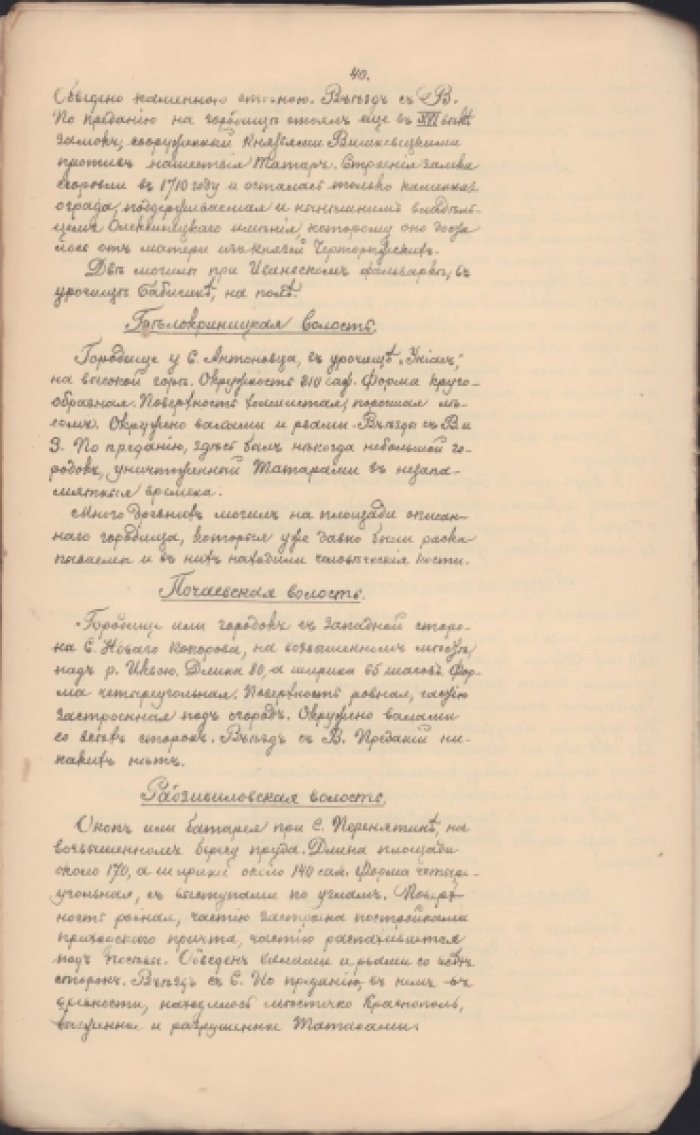 40.
Обведено каменною стѣною. Въѣздъ съ В.
По преданію на городищѣ стоялъ еще въ XVI вѣкѣ
замокъ, сооруженный Князьями Вишневецкими
противъ нашествія Татаръ. Строенія замка
сгорѣли въ 1710 году и осталась только каменная
ограда, поддерживаемая и нынѣшнимъ владѣль-
цемъ имѣнія, которому оно доста
лось отъ матери изъ князей
Двѣ могилы при Иванскомъ фольваркѣ, въ
урочищѣ на полѣ.
Бѣлокриницкая волость.
Городище у С. Антоновца, въ урочищѣ
на высокой горѣ. Окружность 210 саж. Форма круго-
образная. Поверхность холмистая, поросшая лѣ-
сомъ. Окружено валами и рвами. Въѣзда съ В и
З. По преданію, здѣсь былъ нѣкогда небольшой го-
родокъ, уничтоженный Татарами въ незапа-
мятныя времена.
Много древнихъ могилъ на площади описан-
наго городища, которыя уже давно были раска
пываемы и въ нихъ находили человѣческія кости.
Почаевская волость.
Городище или городокъ съ западной сторо-
на С. Новаго Кокорева, на возвышенномъ мысѣ,
надъ р. Иквою. Длина 80, а ширина 65 шаговъ. Фор-
ма четыреугольная. Поверхность ровная, частію
застроенная подъ огородъ. Окружено валами
со всѣхъ сторонъ. Въѣздъ съ В. Преданій ни-
какихъ нѣтъ.
Радзивиловская волость.
Окопъ или батарея при С. Перенятинѣ, на
возвышенномъ берегу пруда. Длина площади
около 170, а ширина около 140 саж. Форма четыре-
угольная, съ выступами по угламъ. Поверх-
ность ровная, частію застроена постройками
приходскаго причта, частію распахивается
подъ посѣвы. Обведенъ валами и рвами со всѣхъ
сторонъ. Въѣздъ съ С. По преданію, въ немъ въ
древности, находилось мѣстечко Краснополь,
и разрушенное Татарами.